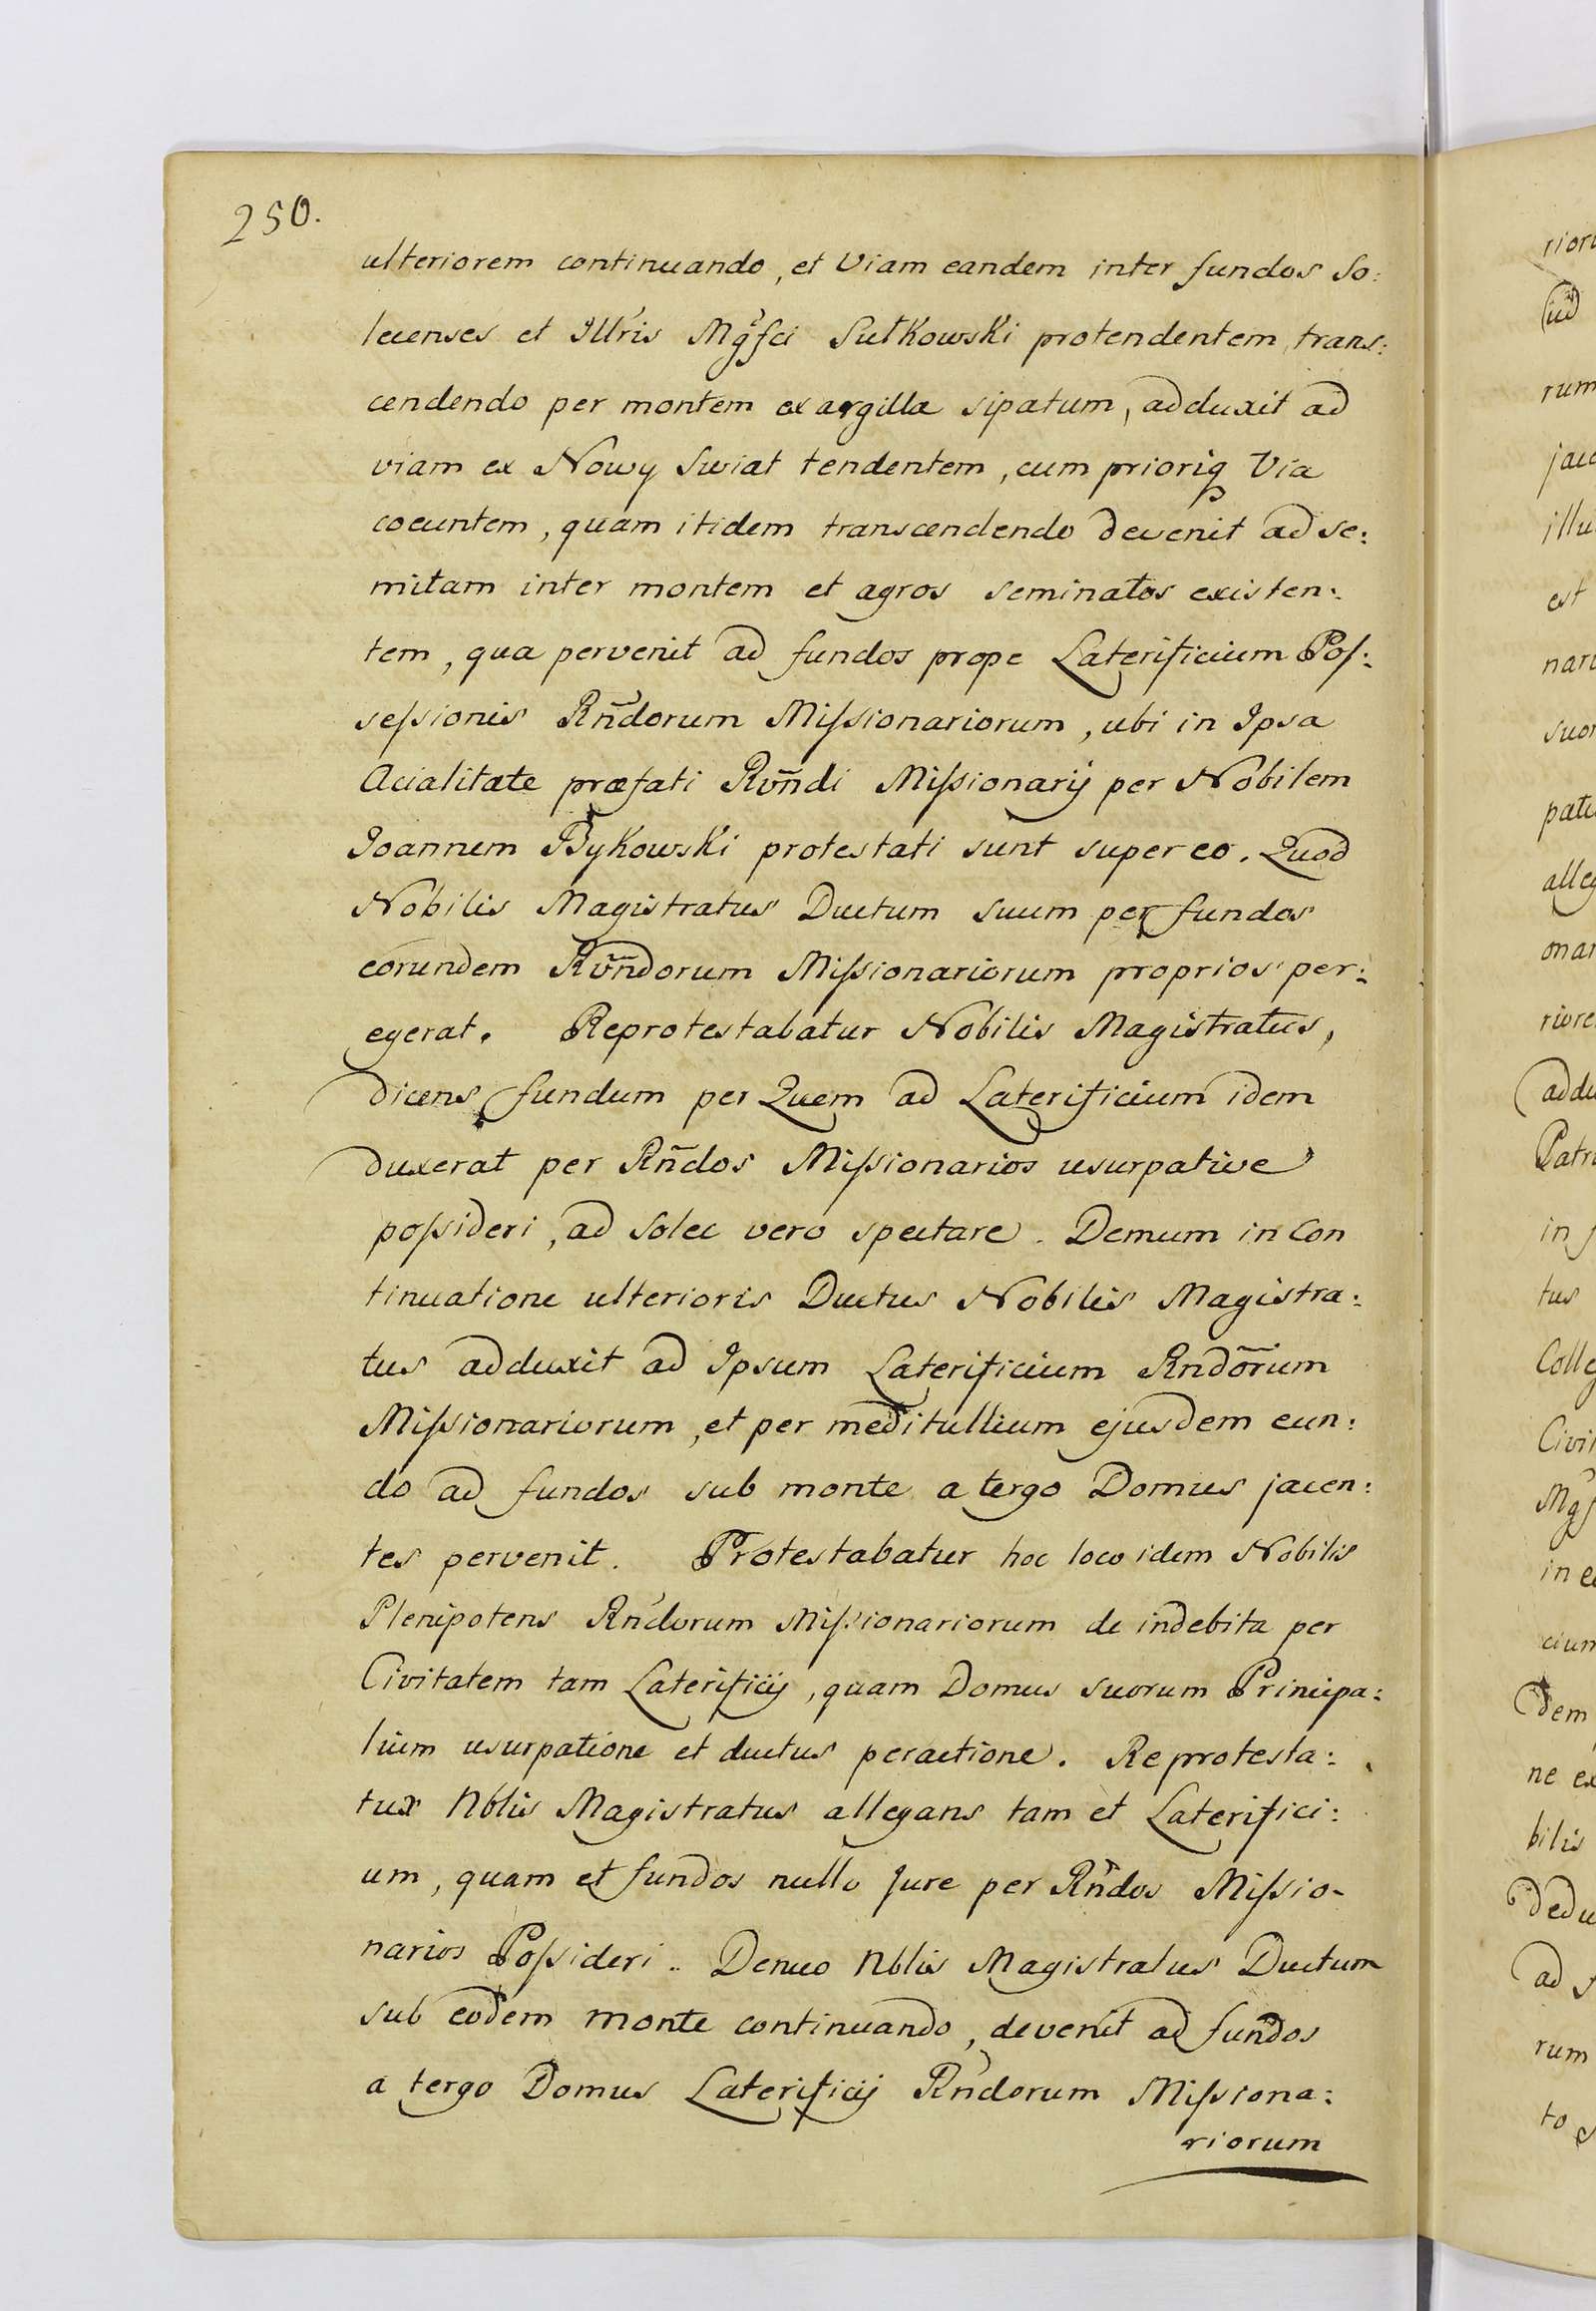 250.
ulteriorem continuando, et Viam eandem inter fundos So:
lecenses et Illris Mgfci Sułkowski protendentem, trans:
cendendo per montem ex argilla sipatum, adduxit ad
viam ex Nowy Swiat tendentem, cum prioriq Via
coeuntem, quam itidem transcendendo devenit ad se:
mitam inter montem et agros seminatos existen:
tem, qua pervenit ad fundos prope Laterificium Pos:
sessionis Rñdorum Missionariorum, ubi in Ipsa
Acialitate præfati Rvñdi Missionarij per Nobilem
Joannem Bykowski protestati sunt super eo. Quod
Nobilis Magistratus Ductum suum per fundos
eorundem Rvñdorum Missionariorum proprios per:
egerat. Reprotestabatur Nobilis Magistratus,
dicens fundum per Quem ad Laterificium idem
duxerat per Rñdos Missionarios usurpative
possideri, ad Solec vero spectare. Demum in Con
tinuatione ulterioris Ductus Nobilis Magistra:
tus adduxit ad Ipsum Laterificium Rndorum
Missionariorum, et per meditullium ejusdem eun:
do ad fundos sub monte a tergo Domus jacen:
tes pervenit. Protestabatur hoc loco idem Nobilis
Plenipotens Rndorum Missionariorum de indebita per
Civitatem tam Laterificij, quam Domus suorum Principa:
lium usurpatione et ductus peractione. Reprotesta:
tur Nblis Magistratus allegans tam et Laterifici:
um, quam et fundos nullo Jure per Rñdos Missio-
narios Possideri.. Denuo Nblis Magistratus Ductum
sub eodem monte continuando, devenit ad fundos
a tergo Domus Laterificij Rndorum Missiona:
riorum